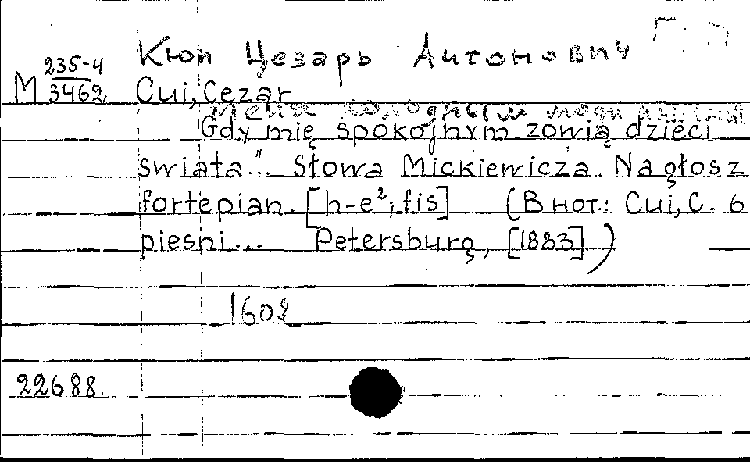 Кюи Цезарь Антонович
М 235-4
3462
Cui, Cezar
"Gdy mię spokojnym zowią dzieci
swiata". Słowa Mickiewicza. Na głosz
fortepian. [h-e², fis] (В нот.: Cui, C. 6
piesni... Petersburg, [1883])
1602
22688